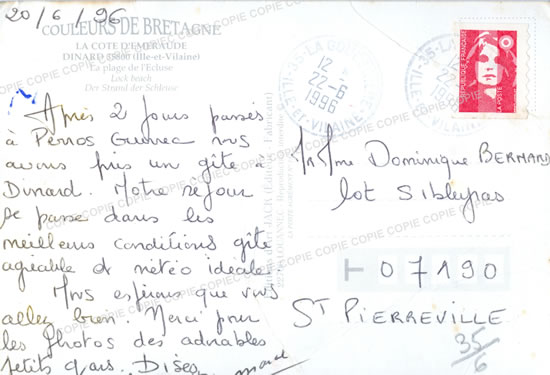 20/6/96
COULEURS DE BRETAGNE
LA COTE D'EMERAUDE
DINARD 35800 (Ille-et-Vilaine)
La plage de l'Ecluse
Lock beach
Der Strand der Schleuse
Après 2 jours passés
à Perros Guirrec nous
avons pris un gîte à
Dinard. Notre séjour
se passe dans les
meilleurs conditions gîte
agréable et météo idéale.
Nous espérons que vous
allez bien. Merci pour
les photos des adorables
petits gars. Disez
35-LA GOUESNIERE
12 H
22-6
1996
ILLE-et-VILAINE
REPUBLIQUE FRANÇAISE
LA POSTE
Mr Mme Dominique BERNARD
lot Sibleyras
07190
ST PIERREVILLE
35/6
COPIE COPIE COPIE COPIE COPIE COPIE